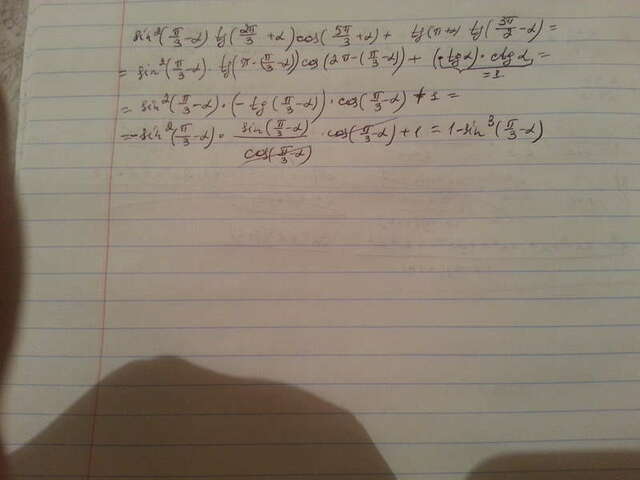 sin²(π/3-α) tg(2π/3+α)cos(5π/3+α)+ tg(π+α) tg(3π/2-α)=
=sin²(π/3-α)·tg(π-(π/3-α))cos(2π-(π/3-α))+(tgα)·ctgα=
=1
=sin²(π/3-α)·(-tg(π/3-α))·cos(π/3-α)+1=
=-sin²(π/3-α)·sin(π/3-α)/cos(π/3-α)·cos(π/3-α)+1=1-sin³(π/3-α)